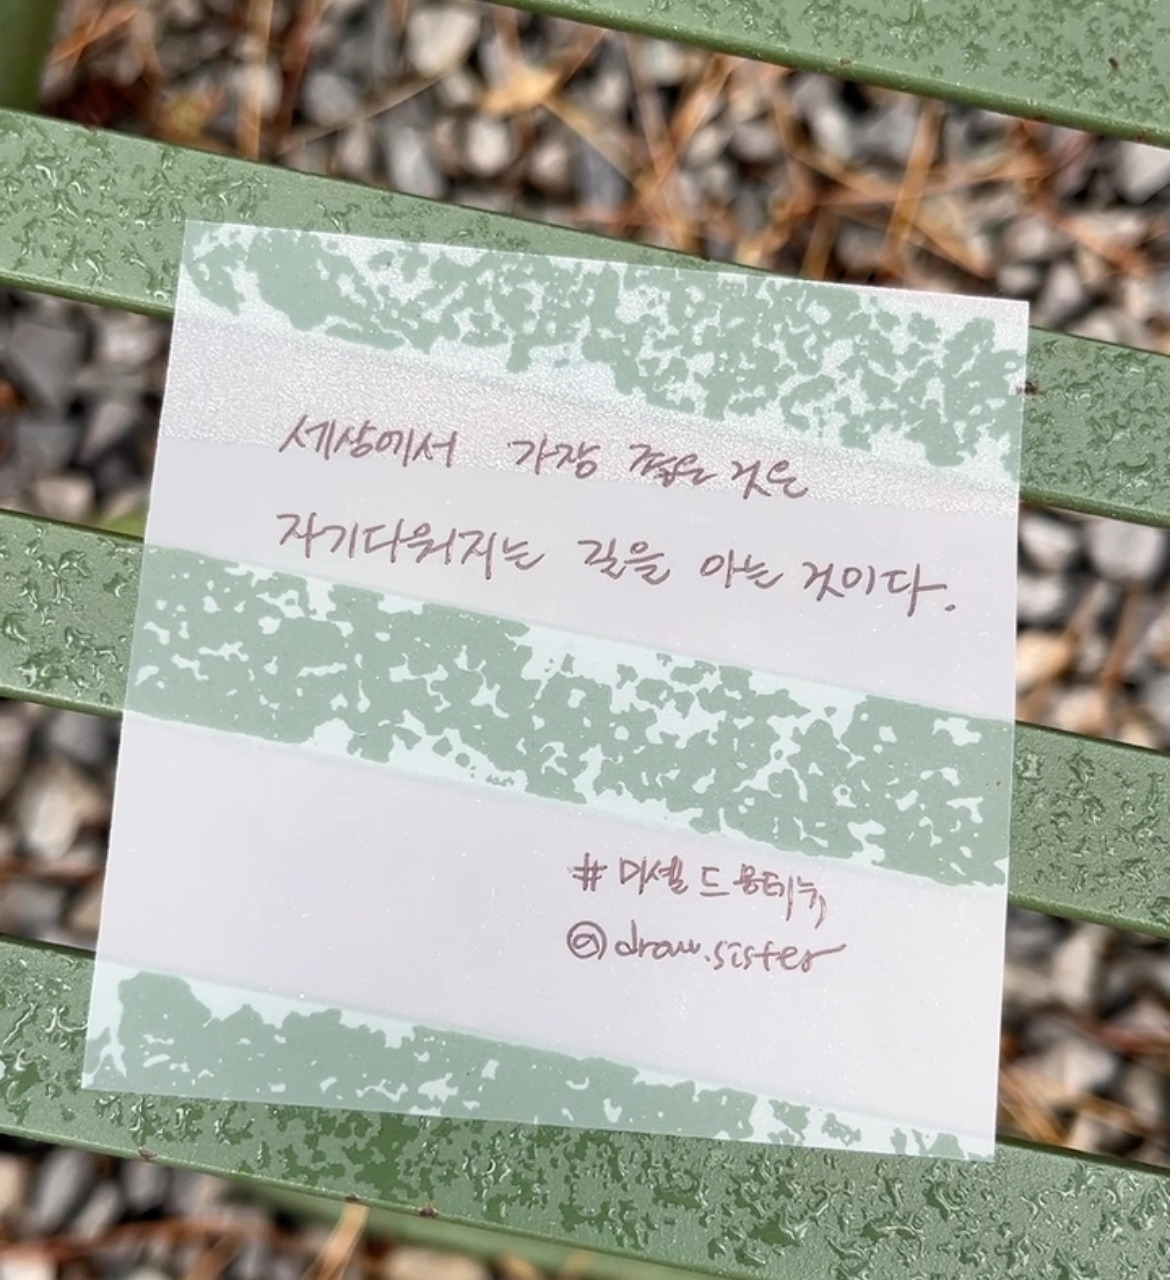 세상에서 가장 것은
자기다워지는 길을 아는 것이다.
# 미셸 드 몽테뉴
@draw.sister